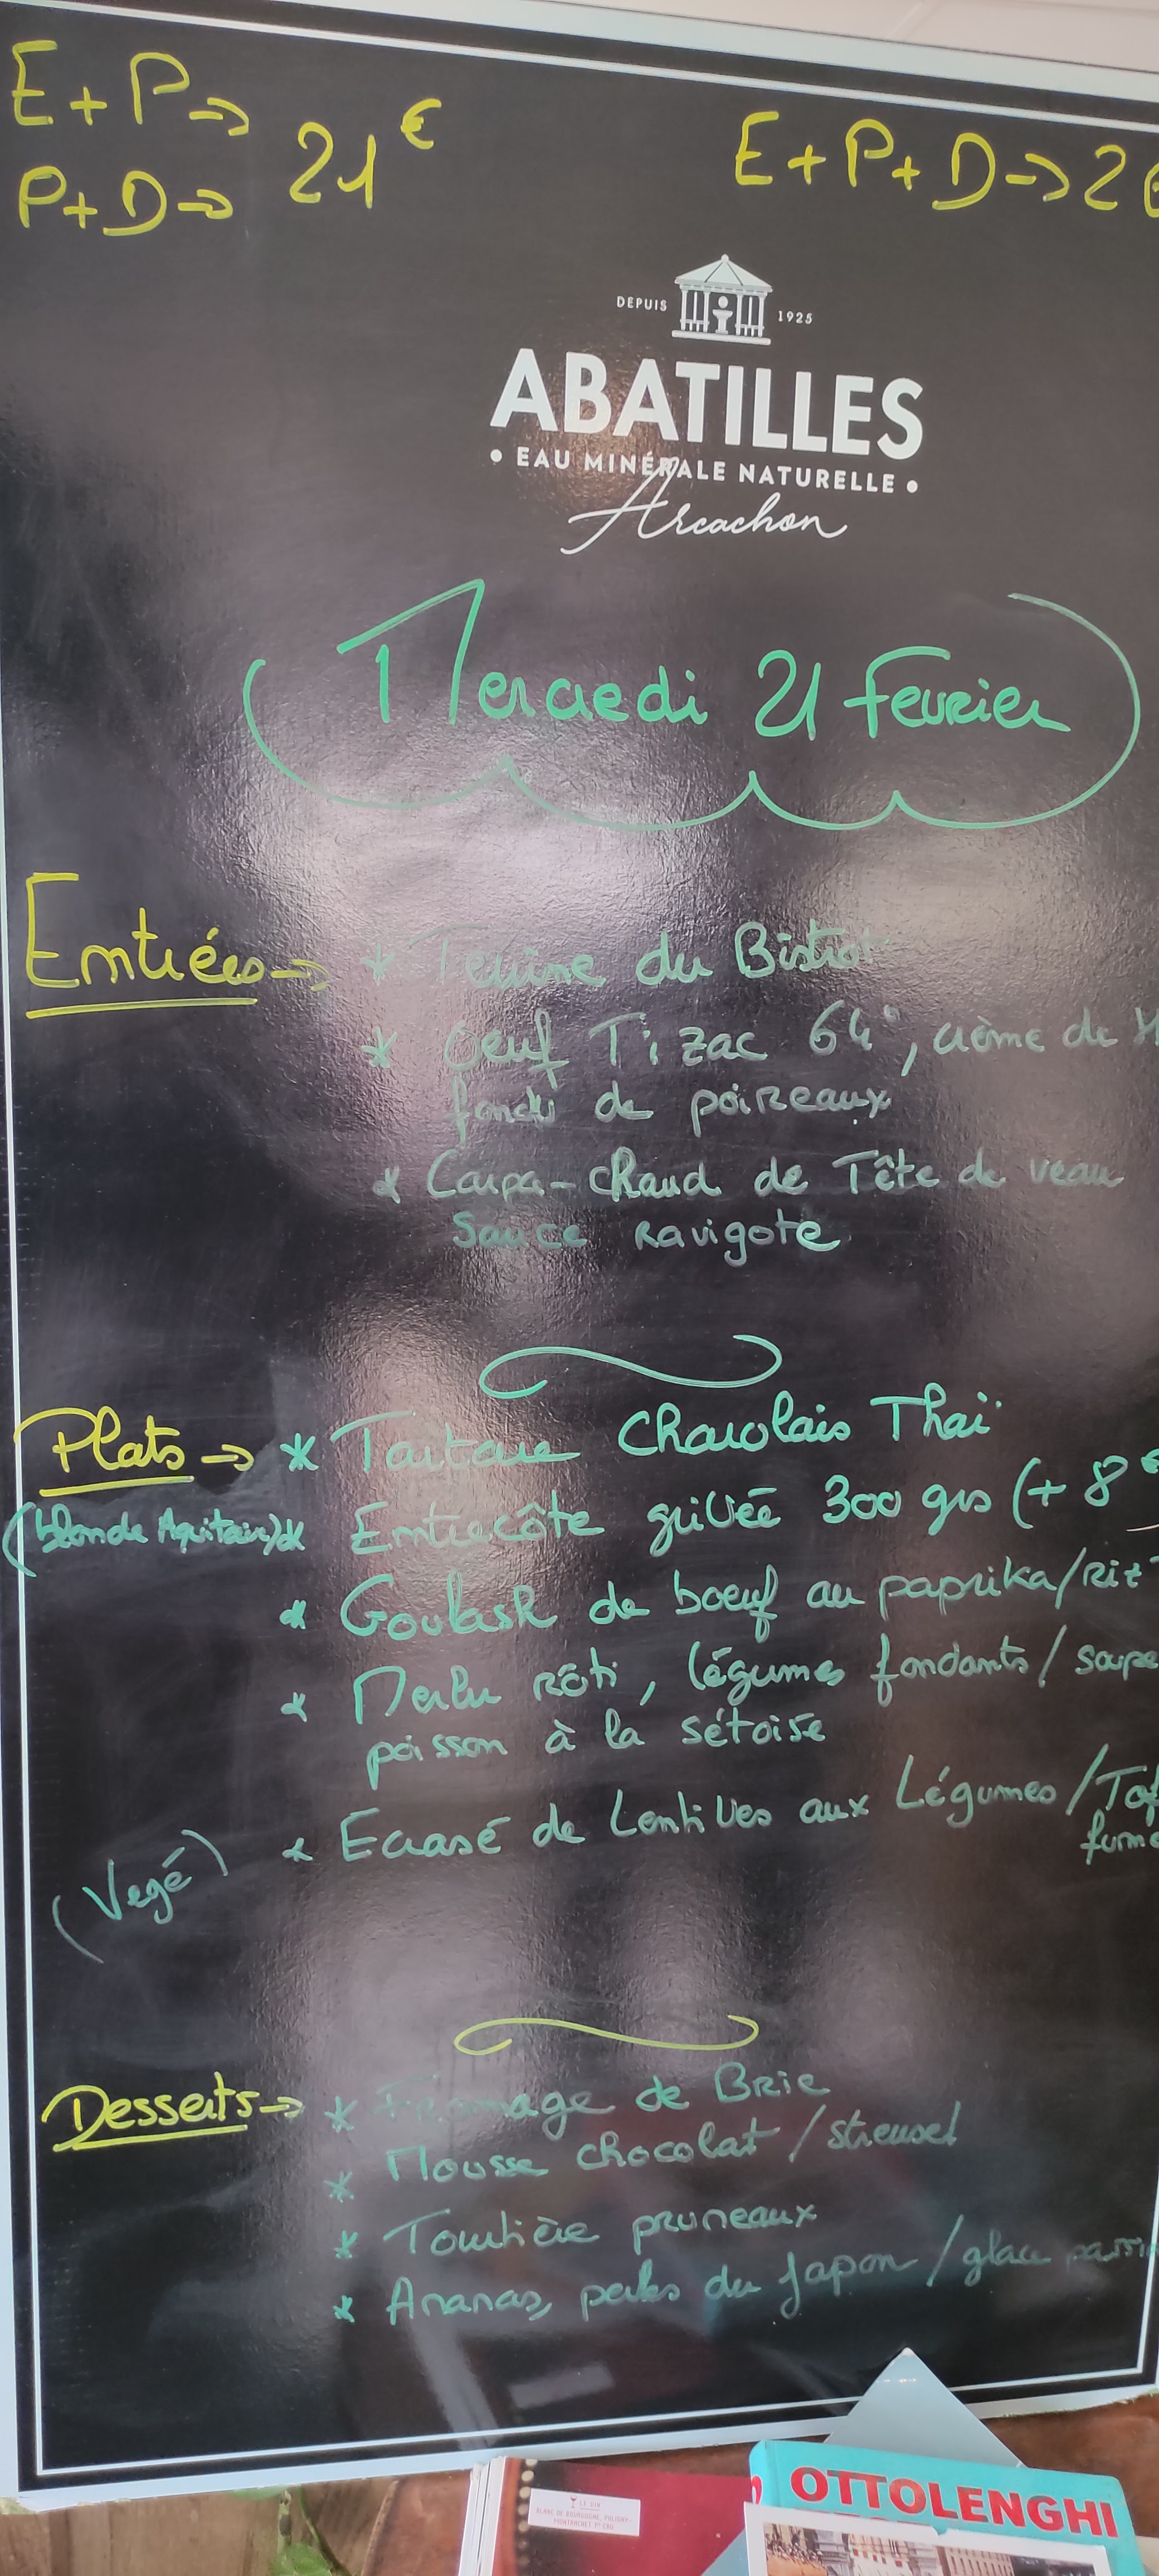 E+P→
P+D→ 21€
E+P+D→ 2
DEPUIS 1925
ABATILLES
• EAU MINÉRALE NATURELLE •
Arcachon
Mercredi 21 Fevrier
Entrées → * Terrine du Bistrot
* Oeuf Ti zac 64°, crème de
fondu de poireaux
* Carpa-chaud de Tête de veau
Sauce Ravigote
Plats → * Tartare Charolais Thaï
(blonde Aquitaine) * Entrecôte grillée 300 grs (+ 8€
* Goulash de boeuf au paprika/riz
* Merlu rôti, légumes fondants / soupe
poisson à la sétoise
(Vegé) * Ecrasé de Lentilles aux Légumes /
Desserts → * Fromage de Brie
* Mousse chocolat / streusel
* Tourtière pruneaux
* Ananas, perles du Japon / glace
LE VIN
BLANC DE BOURGOGNE, PULIGNY-
MONTRACHET 1ER CRU
OTTOLENGHI